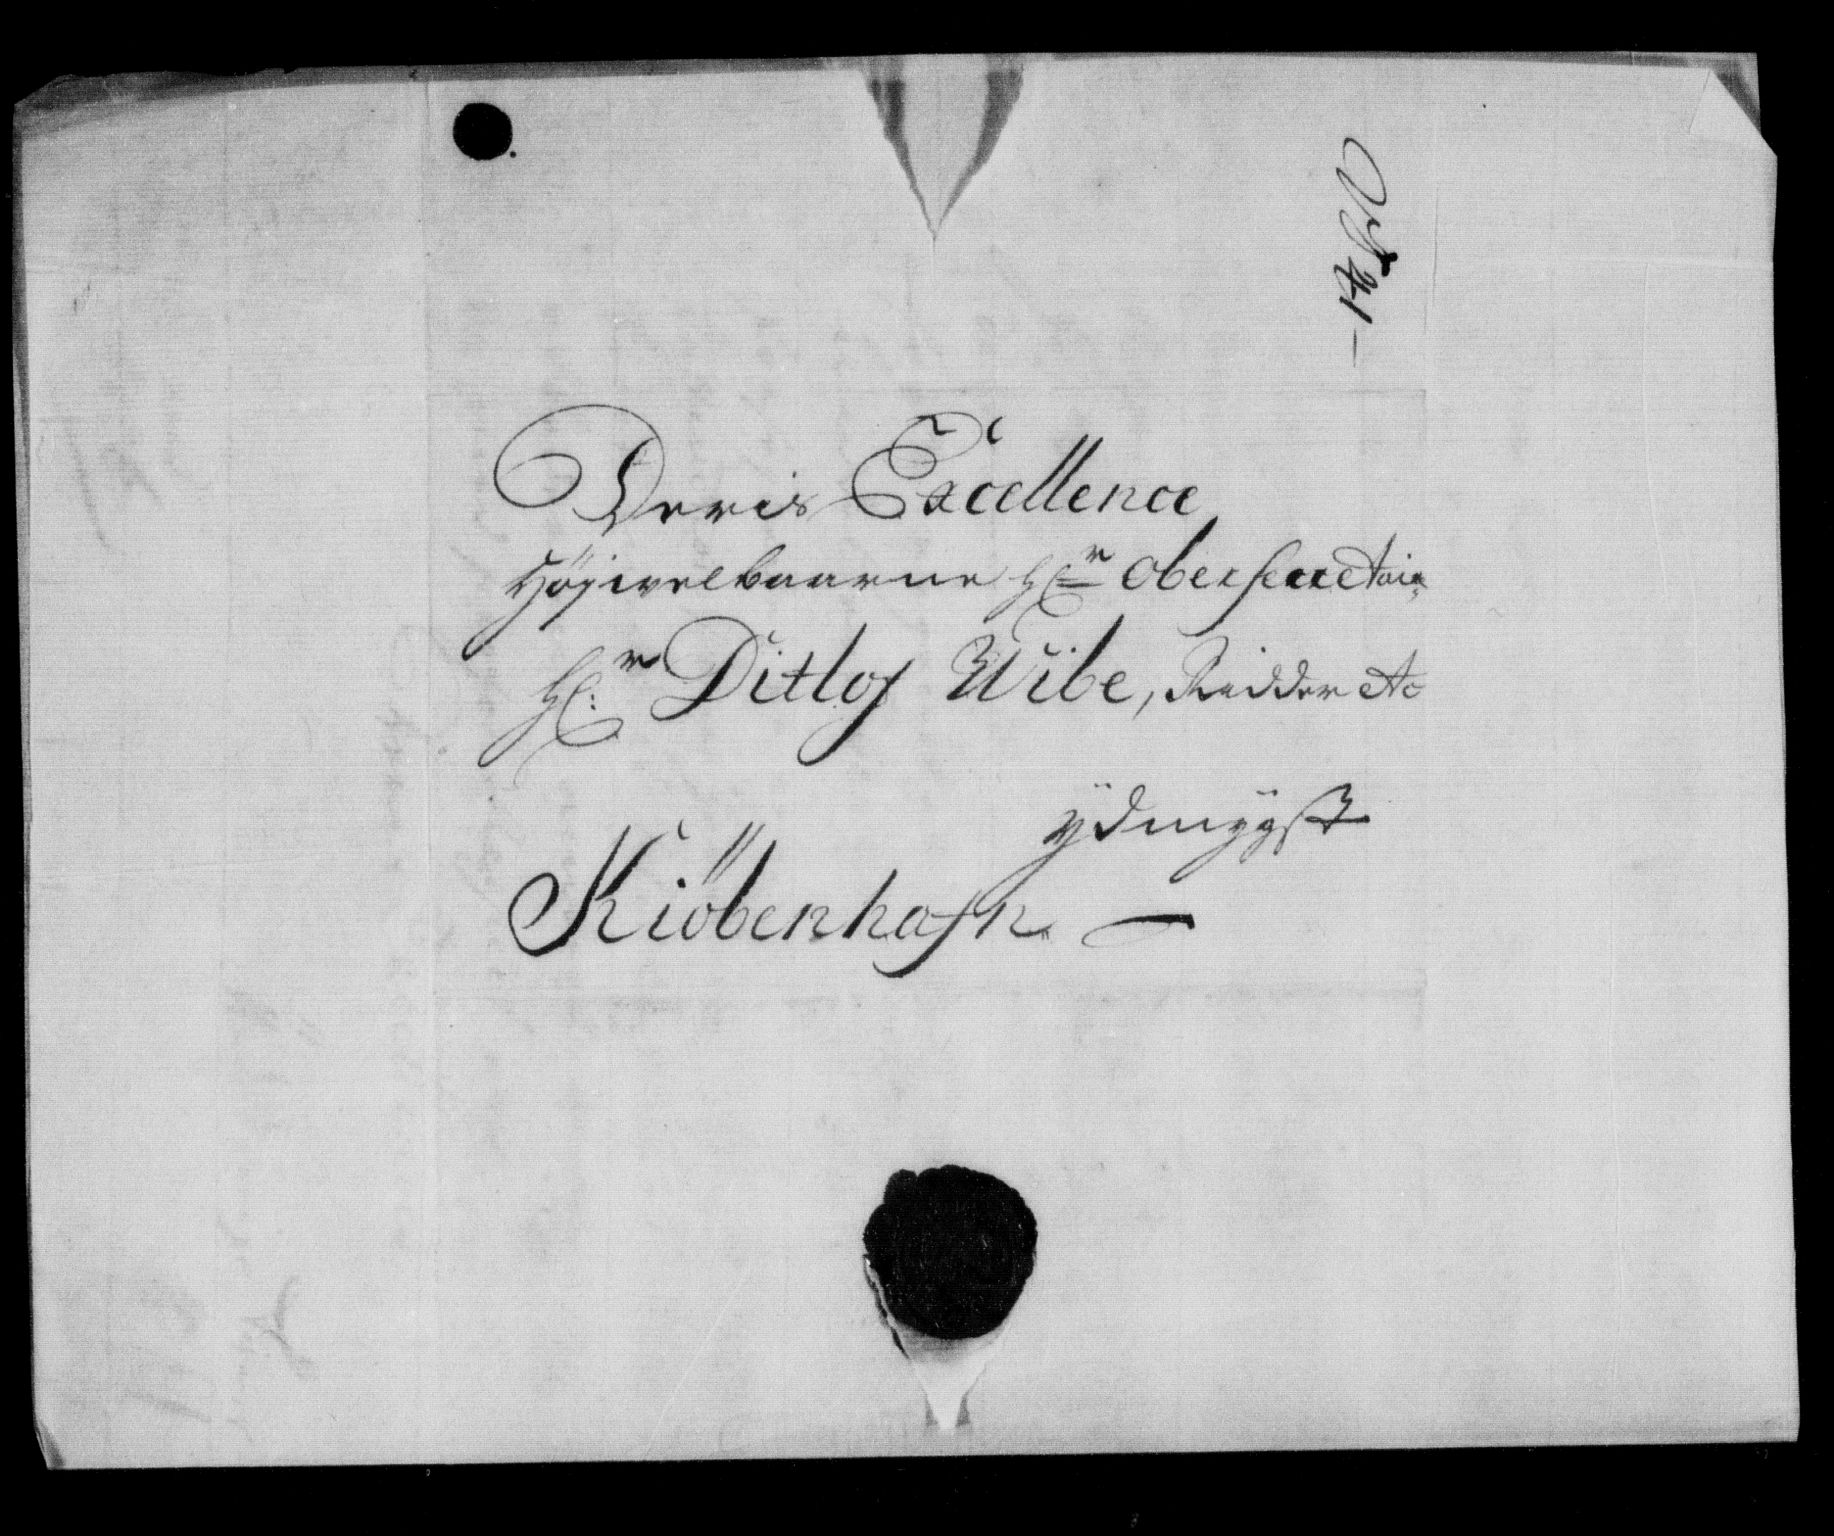 Deris Excellence
Høÿwelbaarne Hr Obersecretair
Hr: Ditlof Wibe, Ridder etc
ÿdmÿgst
Kiöbenhafn